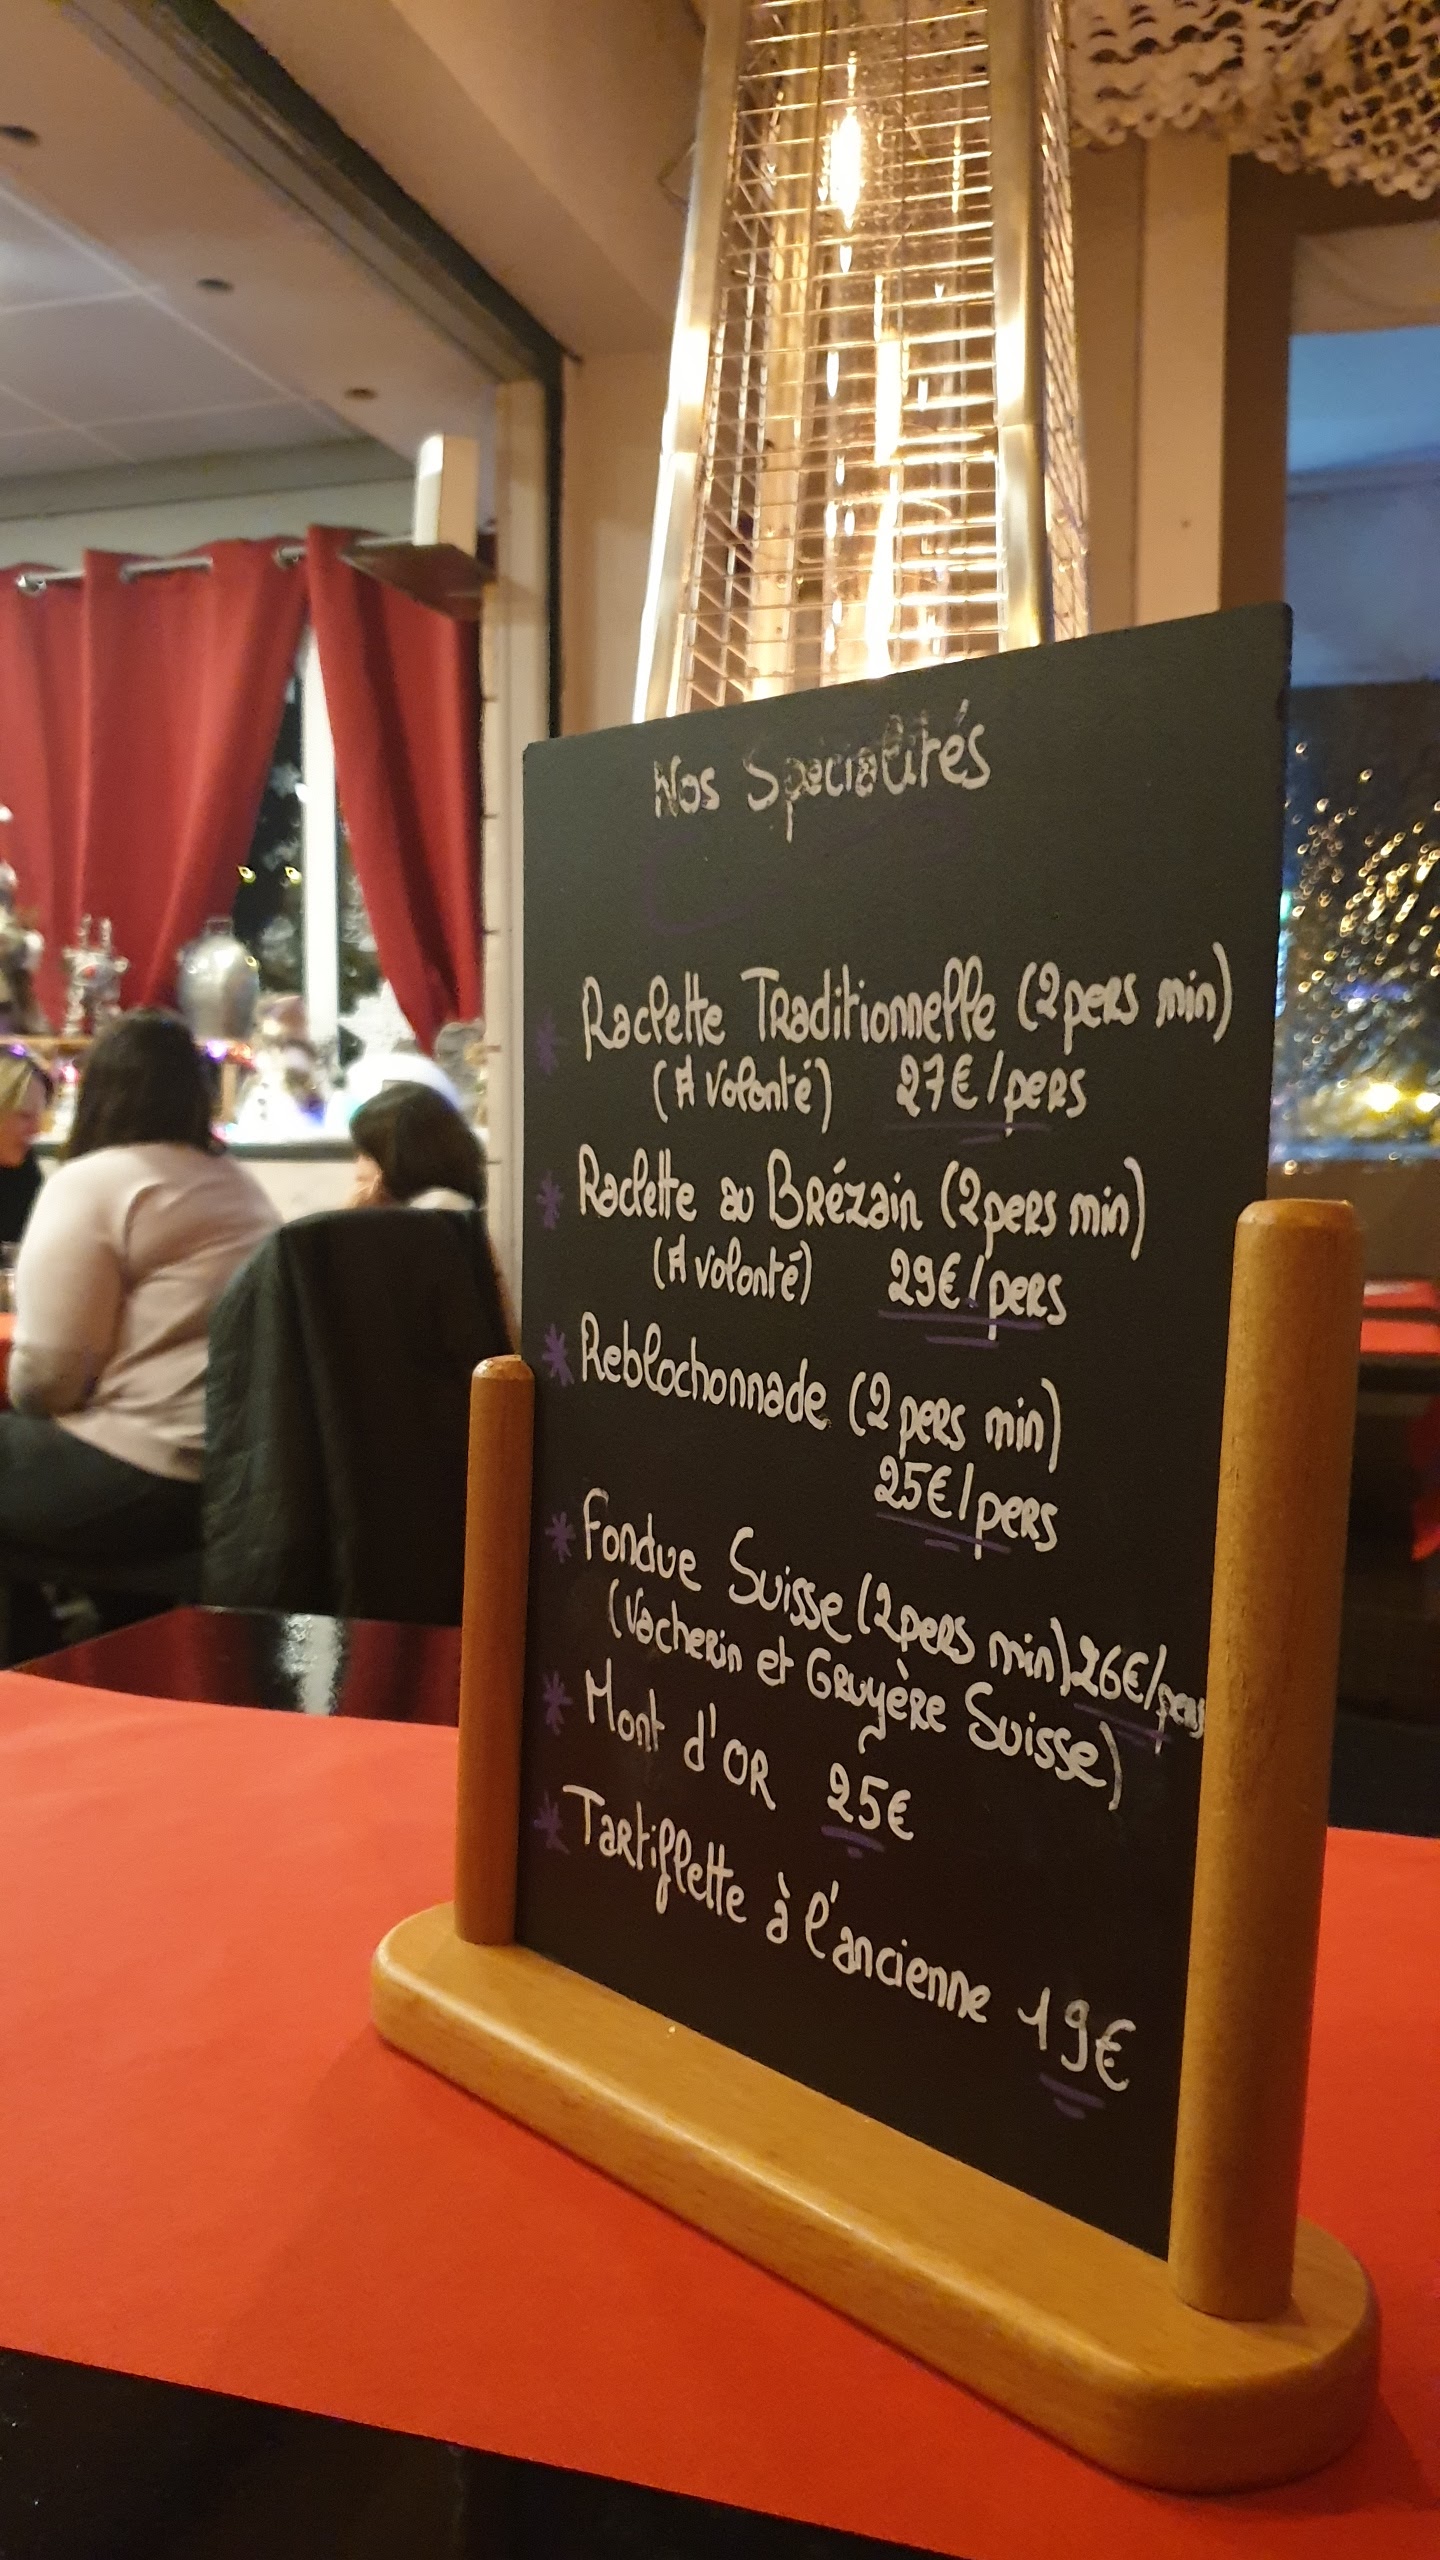 Nos Spécialités
* Raclette Traditionnelle (2pers min)
(A volonté) 27€/pers
* Raclette au Brézain (2pers min)
(A volonté) 29€/pers
* Reblochonnade (2 pers min)
25€/pers
* Fondue Suisse (2pers min) 26€/pers
(Vacherin et Gruyère Suisse)
* Mont d'OR 25€
* Tartiflette à l'ancienne 19€